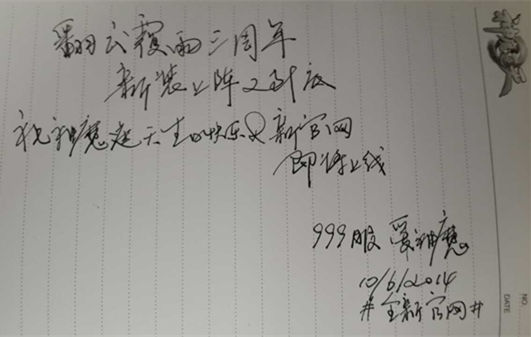 翻云覆雨三周年
新装上阵又到底
祝神魔遮天生日快乐又新官网
即将上线
999服 爱神魔
10/6/2014
#全新官网#
NO
DATE